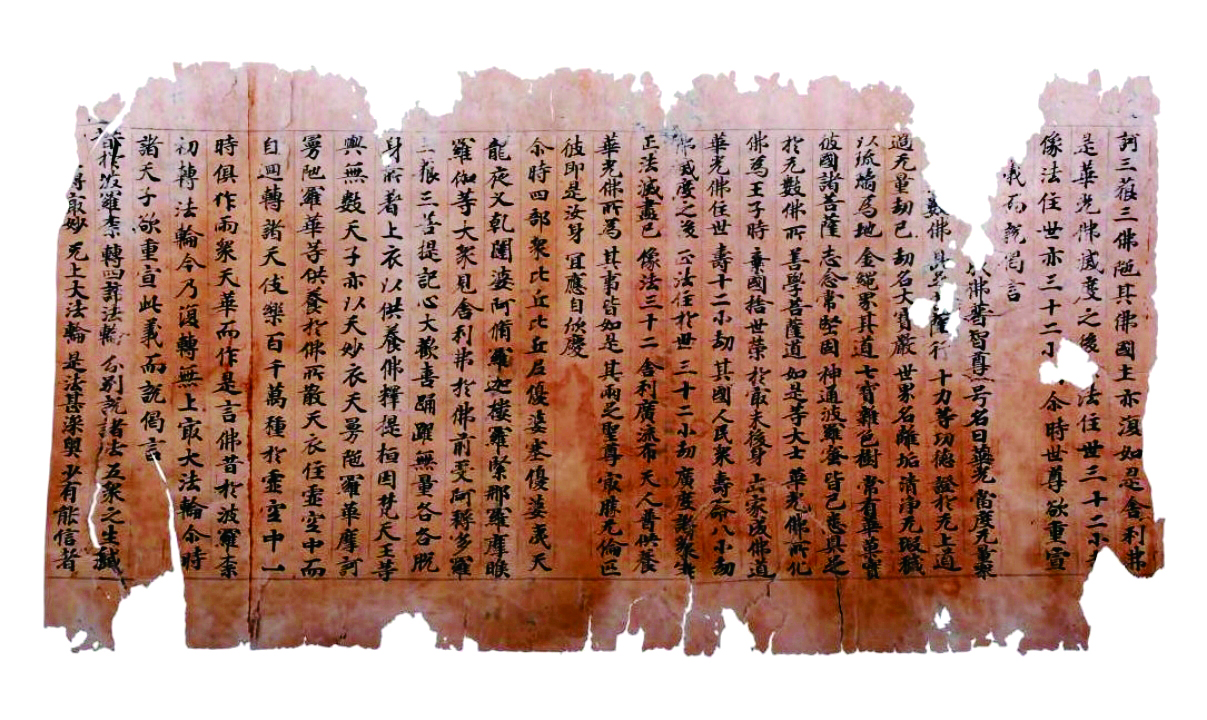 訶三藐三佛陁其佛國土亦復如是舍利弗
是華光佛滅度之後 法住世三十二小
像法住世亦三十二小 尒時世尊欲重宣
義而說偈言
佛普智尊 号名曰華光 當度无量衆
數佛 行 十力等功德 證於无上道
過无量劫已 劫名大寶嚴 世界名離垢 清淨无瑕穢
以琉璃爲地 金繩界其道 七寶雜色樹 常有華菓實
彼國諸菩薩 志念常堅固 神通波羅蜜 皆已悉具足
於无數佛所 善學菩薩道 如是等大士 華光佛所化
佛爲王子時 棄國捨世榮 於冣末後身 出家成佛道
華光佛住世 壽十二小劫 其國人民衆 壽命八小劫
佛滅度之後 正法住於世 三十二小劫 廣度諸衆生
正法滅盡已 像法三十二 舍利廣流布 天人普供養
華光佛所爲 其事皆如是 其兩足聖尊 冣勝无倫匹
彼即是汝身 冝應自欣慶
尒時四部衆比丘比丘尼優婆塞優婆夷天
龍夜叉乹闥婆阿脩羅迦樓羅緊那羅摩睺
羅伽等大衆見舍利弗於佛前受阿耨多羅
三藐三菩提記心大歡喜踊躍無量各各脫
身所著上衣以供養佛釋提桓因梵天王等
與無數天子亦以天妙衣天曼陁羅華摩訶
曼陁羅華等供養於佛所散天衣住虛空中而
自迴轉諸天伎樂百千萬種於虛空中一
時俱作雨衆天華而作是言佛昔於波羅柰
初轉法輪今乃復轉無上冣大法輪尒時
諸天子欲重宣此義而說偈言
昔於波羅柰 轉四諦法輪 分別說諸法 五衆之生滅
冣妙 无上大法輪 是法甚深奧 少有能信者